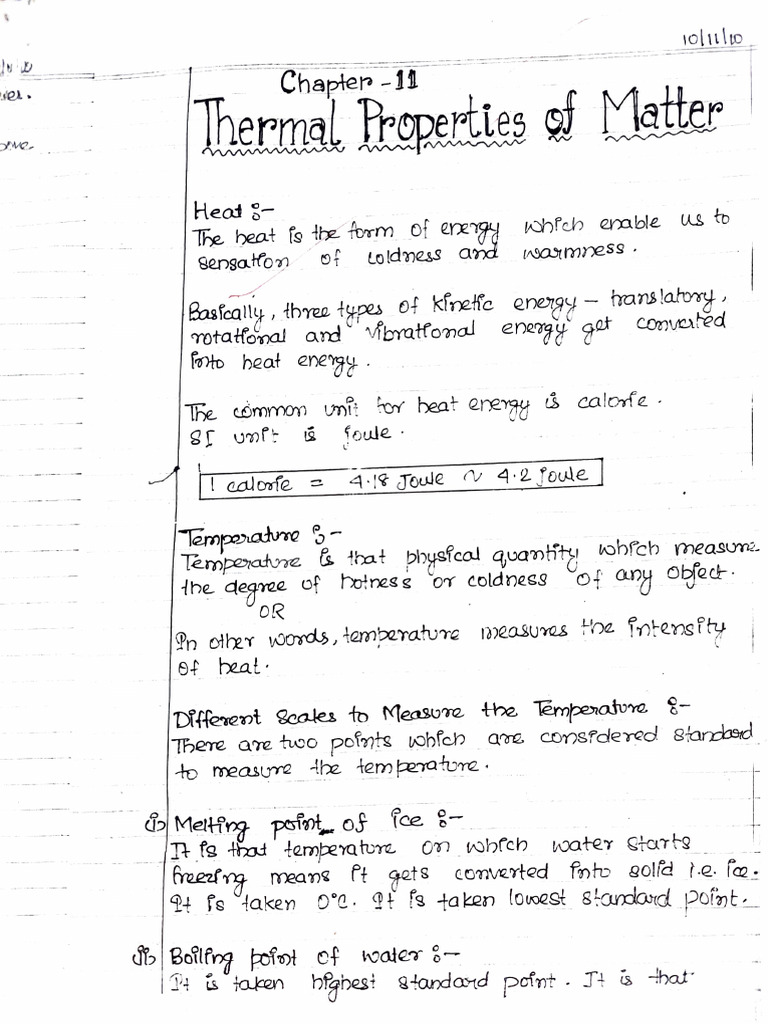 10/11/10
ver.
Chapter - 11
Thermal Properties of Matter
Heat :-
The heat is the form of energy which enable us to
sensation of coldness and warmness.
Basically, three types of kinetic energy - translatory,
rotational and vibrational energy get converted
into heat energy.
The common unit for heat energy is calorie.
SI unit is joule.
1 calorie = 4.18 Joule ~ 4.2 joule
Temperature :-
Temperature is that physical quantity which measure
the degree of hotness or coldness of any object.
OR
In other words, temperature measures the intensity
of heat.
Different Scales to Measure the Temperature :-
There are two points which are considered standard
to measure the temperature.
i) Melting point of ice :-
It is that temperature on which water starts
freezing means it gets converted into solid i.e. ice.
It is taken 0°C. It is taken lowest standard point.
ii) Boiling point of water :-
It is taken highest standard point. It is that